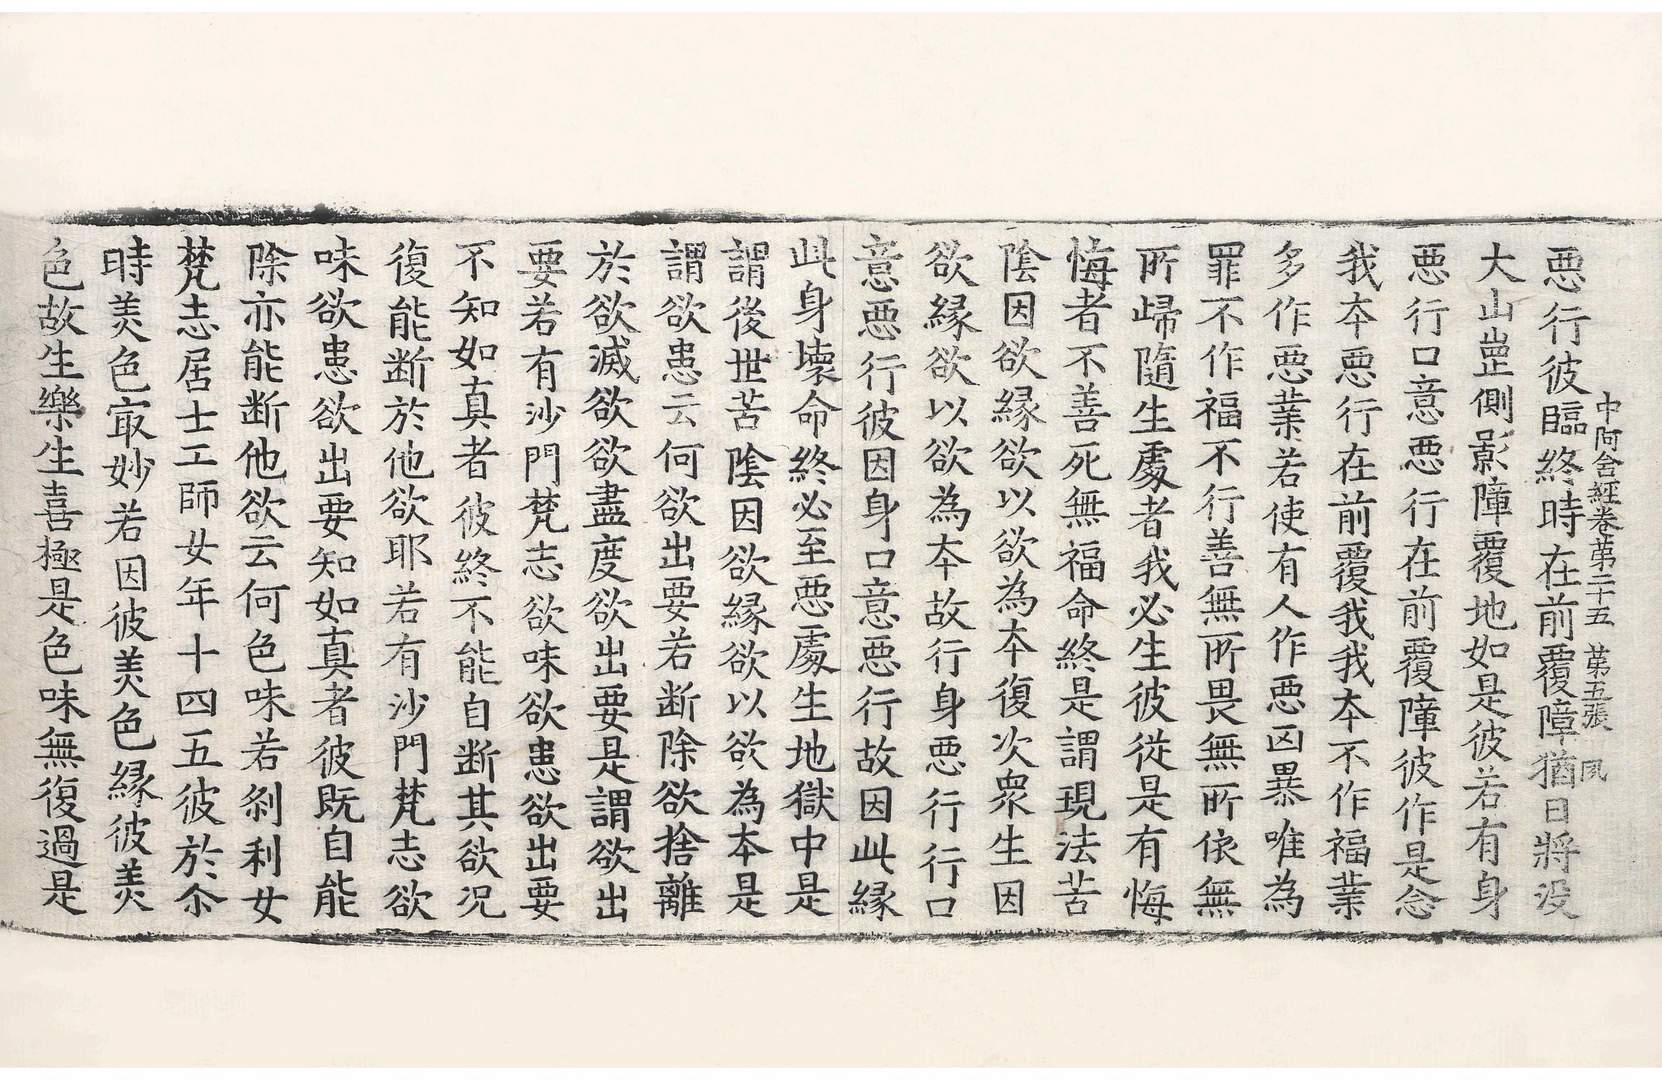 中阿含經卷第二十五　第五張　夙
惡行彼臨終時在前覆障猶日將没
大山崗側影障覆地如是彼若有身
惡行口意惡行在前覆障彼作是念
我夲惡行在前覆我我夲不作福業
多作惡業若使有人作惡凶暴唯為
罪不作福不行善無所畏無所依無
所歸隨生處者我必生彼從是有悔
悔者不善死無福命終是謂現法苦
陰因欲緣欲以欲為夲復次衆生因
欲緣欲以欲為夲故行身惡行行口
意惡行彼因身口意惡行故因此緣
此身壞命終必至惡處生地獄中是
謂後世苦陰因欲緣欲以欲為夲是
謂欲患云何欲出要若断除欲捨離
於欲滅欲欲盡度欲出要是謂欲出
要若有沙門梵志欲味欲患欲出要
不知如真者彼終不能自断其欲况
復能断於他欲耶若有沙門梵志欲
味欲患欲出要知如真者彼既自能
除亦能断他欲云何色味若刹利女
梵志居士工師女年十四五彼於尒
時美色㝡妙若因彼美色緣彼美
色故生樂生喜極是色味無復過是